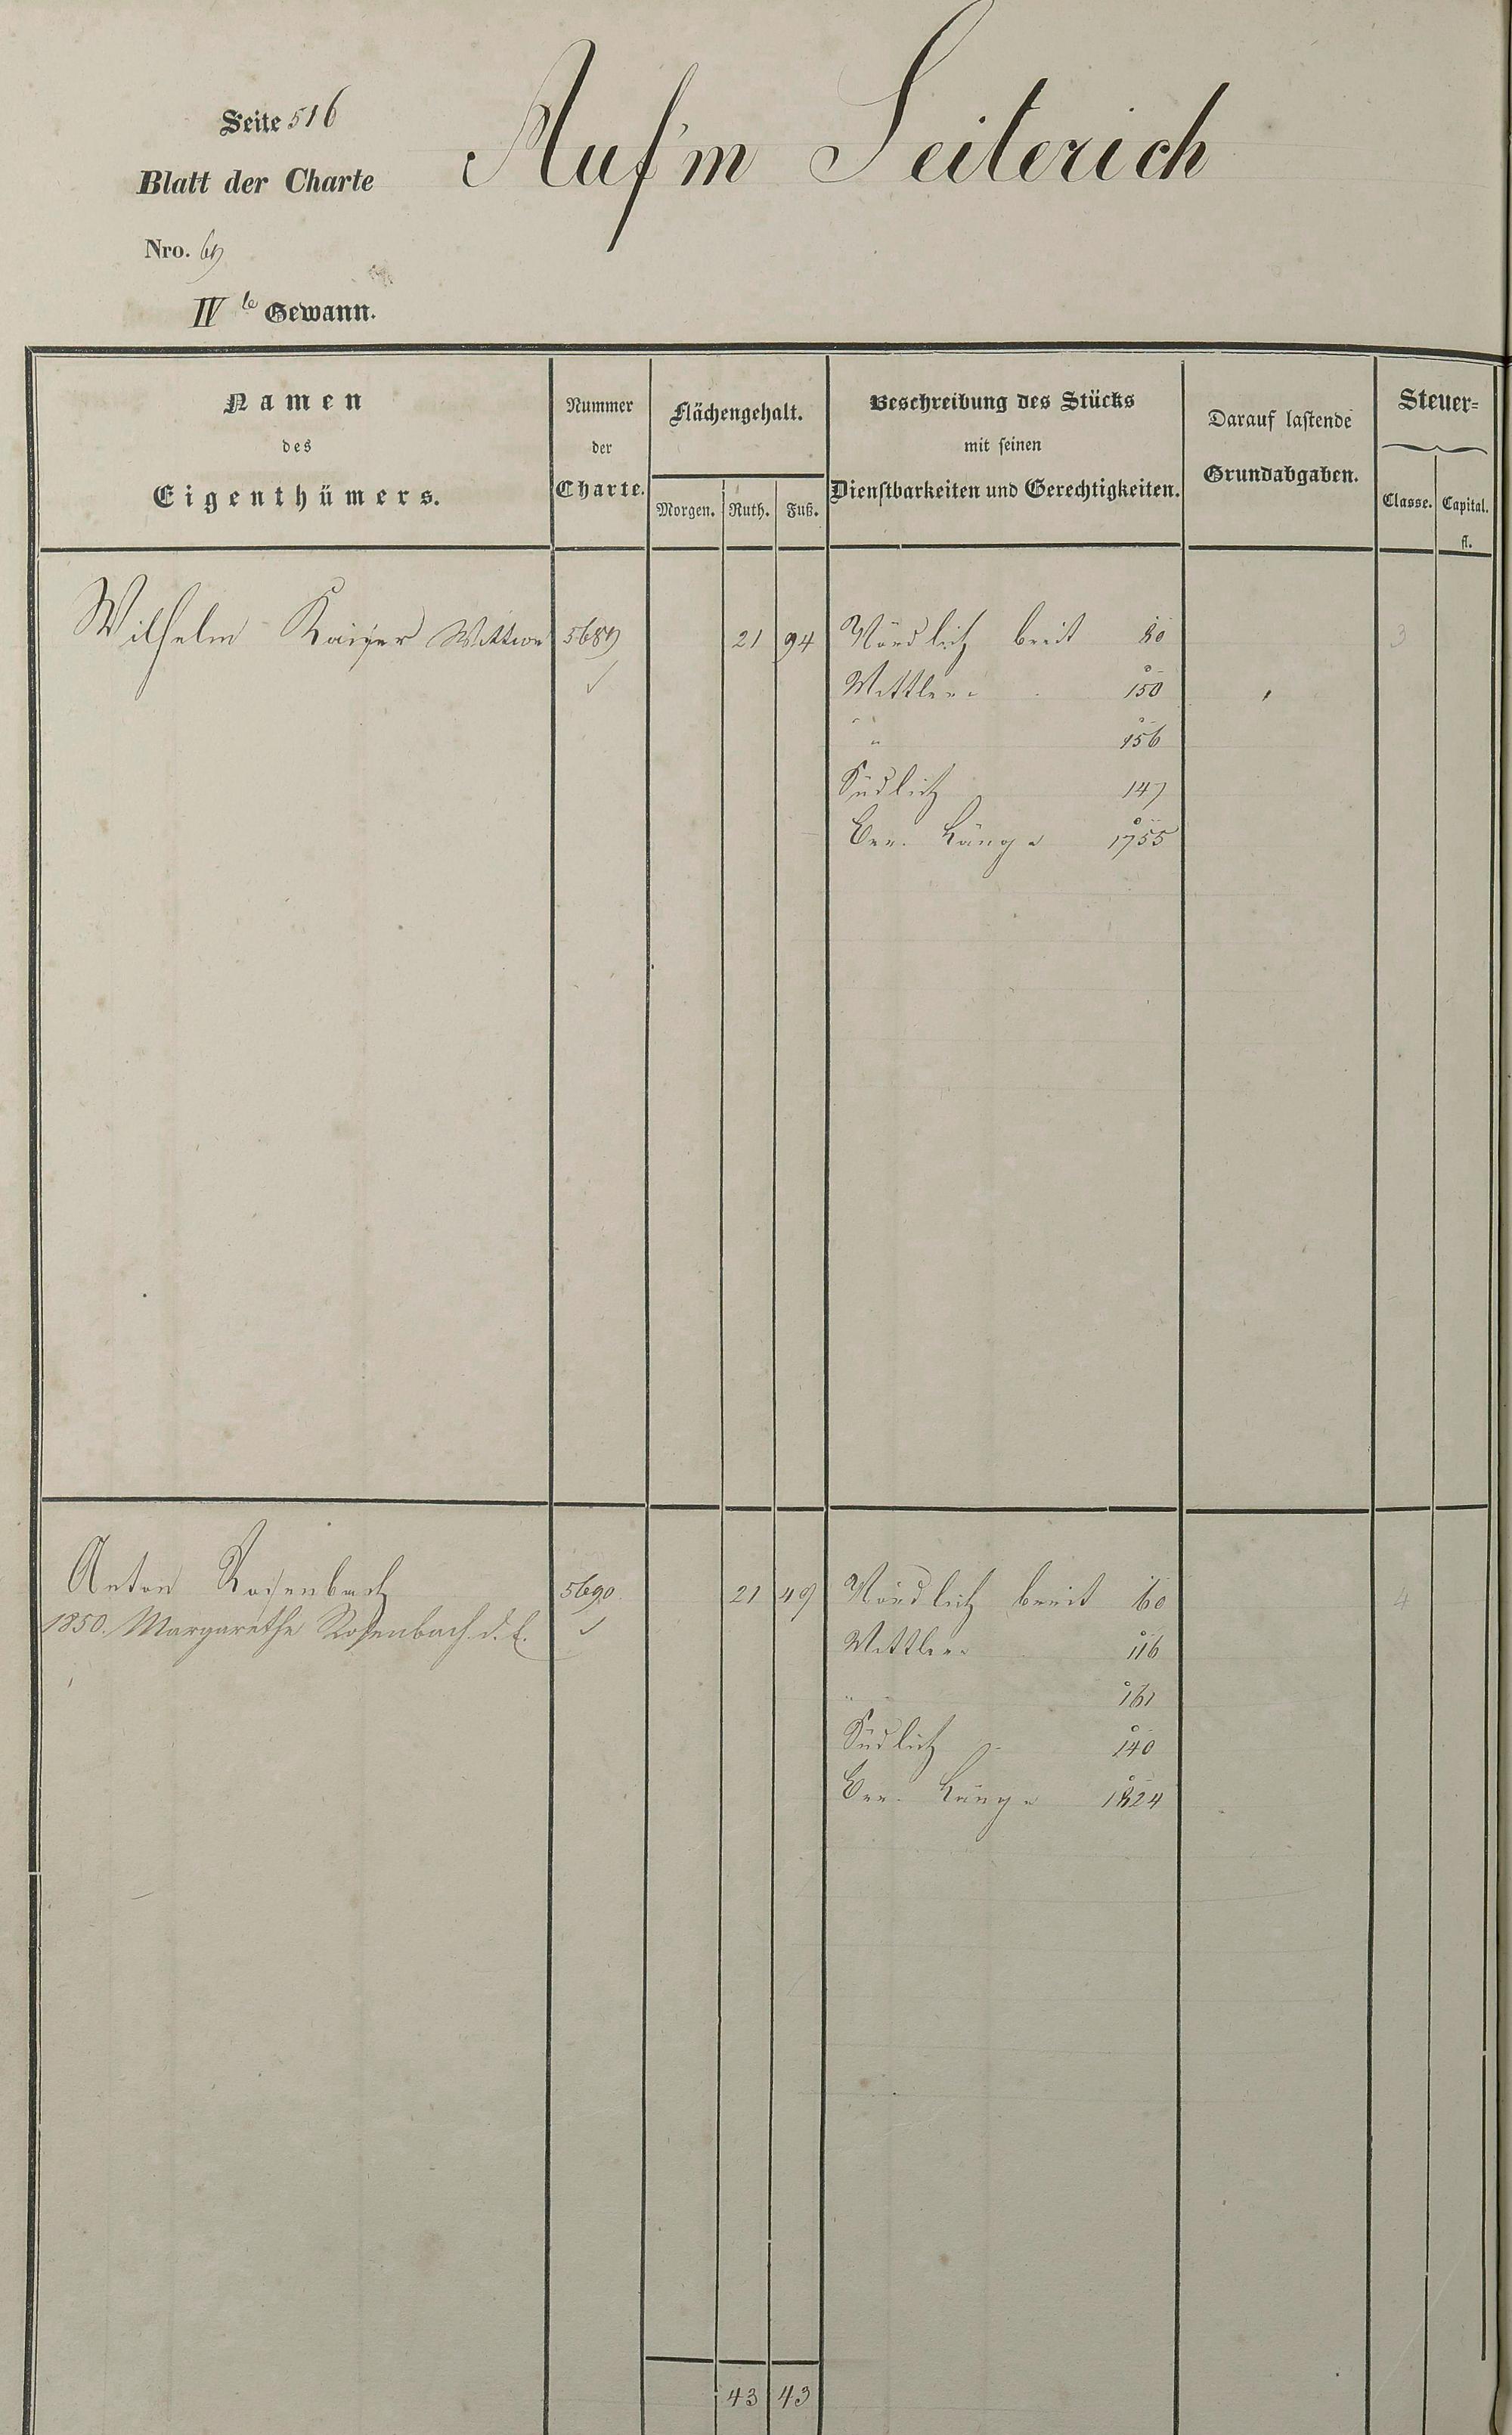 Seite 516
Auf'm Seiterich
Blatt der Charte
Nro. 69
IV te Gewann.
Namen
des
Eigenthümers.
Nummer
der
Charte.
Flächengehalt.
Morgen. Ruth. Fuß.
Beschreibung des Stücks
mit seinen
Dienstbarkeiten und Gerechtigkeiten.
Darauf lastende
Grundabgaben.
Steuer=
Classe. Capital.
fl.
Wilhelm Kaiser Wittwe 5689 21 94 Nördlich breit 80 3
Mittlere 150
" 156
Südlich 147
Cor. Länge 1755
Anton Rosenbach 5690 21 49 Nördlich breit 60 4
1850. Margarethe Rosenbach d. E.
Mittlere 116
" 161
Südlich " 140
Cor. Länge 1824
43 43